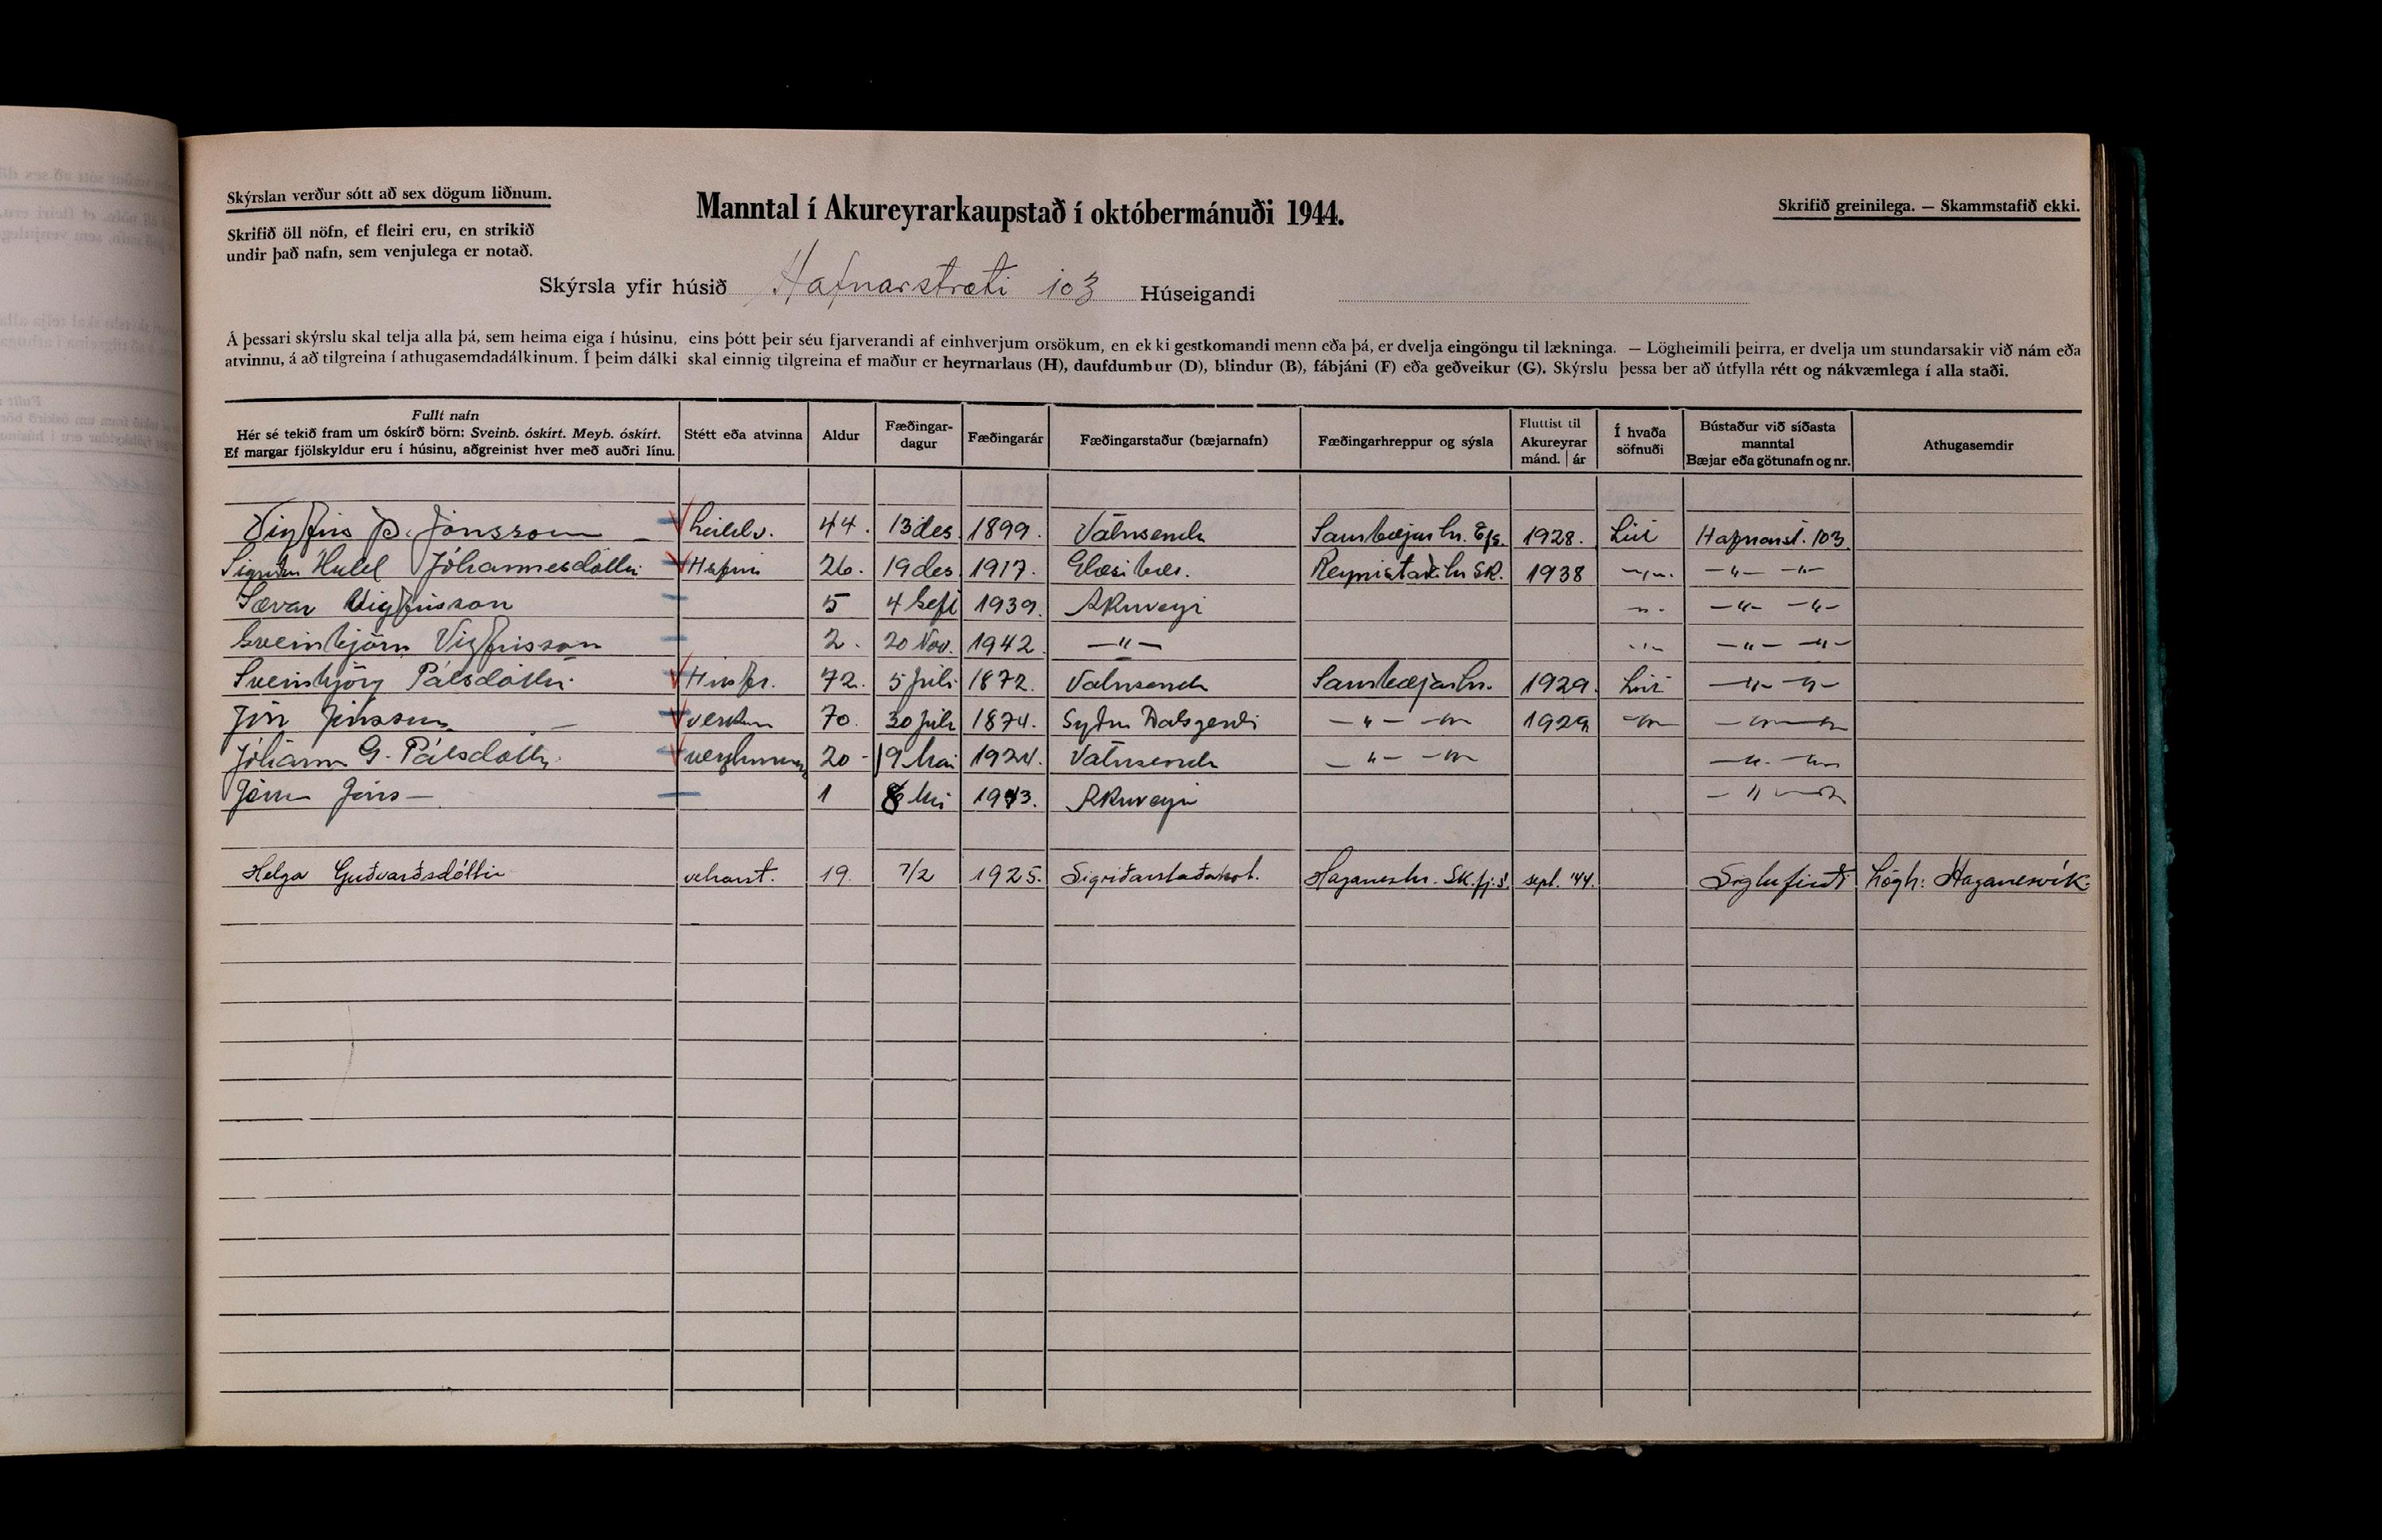 Skýrslan verður sótt að sex dögum liðnum.
Skrifið öll nöfn, ef fleiri eru, en strikið
undir það nafn, sem venjulega er notað.
Manntal í Akureyrarkaupstað í októbermánuði 1944.
Skrifið greinilega. — Skammstafið ekki.
Skýrsla yfir húsið Hafnarstræti 103 Húseigandi
Á þessari skýrslu skal telja alla þá, sem heima eiga í húsinu, eins þótt þeir séu fjarverandi af einhverjum orsökum, en ekki gestkomandi menn eða þá, er dvelja eingöngu til lækninga. — Lögheimili þeirra, er dvelja um stundarsakir við nám eða
atvinnu, á að tilgreina í athugasemdadálkinum. Í þeim dálki skal einnig tilgreina ef maður er heyrnarlaus (H), daufdumbur (D), blindur (B), fábjáni (F) eða geðveikur (G). Skýrslu þessa ber að útfylla rétt og nákvæmlega í alla staði.
Fullt nafn
Hér sé tekið fram um óskírð börn: Sveinb. óskírt. Meyb. óskírt.
Ef margar fjölskyldur eru í húsinu, aðgreinist hver með auðri línu.
Stétt eða atvinna
Aldur
Fæðingar-
dagur
Fæðingarár
Fæðingarstaður (bæjarnafn)
Fæðingarhreppur og sýsla
Fluttist til
Akureyrar
mánd. | ár
Í hvaða
söfnuði
Bústaður við síðasta
manntal
Bæjar eða götunafn og nr.
Athugasemdir
Vigfús Þ. Jónsson heildv. 44. 13 des 1899. Vatnsenda Saurbæjar hr. Eyf. 1928. Lút Hafnarst. 103
Sigríður Huld Jóhannesdóttir 26. 19 des 1917. Glæsibæ. Reynistaðahr SK. 1938 —"— —"— —"—
Sævar Vigfússon 5 4 Sept 1939. Akureyri —"— —"— —"—
Sveinbjörn Vigfússon 2. 20 Nov. 1942 —"— —"— —"— —"—
Sveinbjörg Pálsdóttir Húsfr. 72. 5 Júlí 1872. Vatnsenda Saurbæjarhr. 1929. Lút —"— —"—
Jón Jónsson verkam 70. 30 Júlí 1874. Syðra Dalsgerði —"— —"— 1929 —"— —"—
Jóhann G. Pálsdóttir 20 19 Mai 1924. Vatnsenda —"— —"— —"— —"—
1 8 1943. Akureyri —"— —"—
Helga Guðvarðsdóttir 19. 7/2 1925. Sigríðarstaðakot. Haganeshr. Sk.fj.s. sept. '44. Siglufirði Lögh: Haganesvík